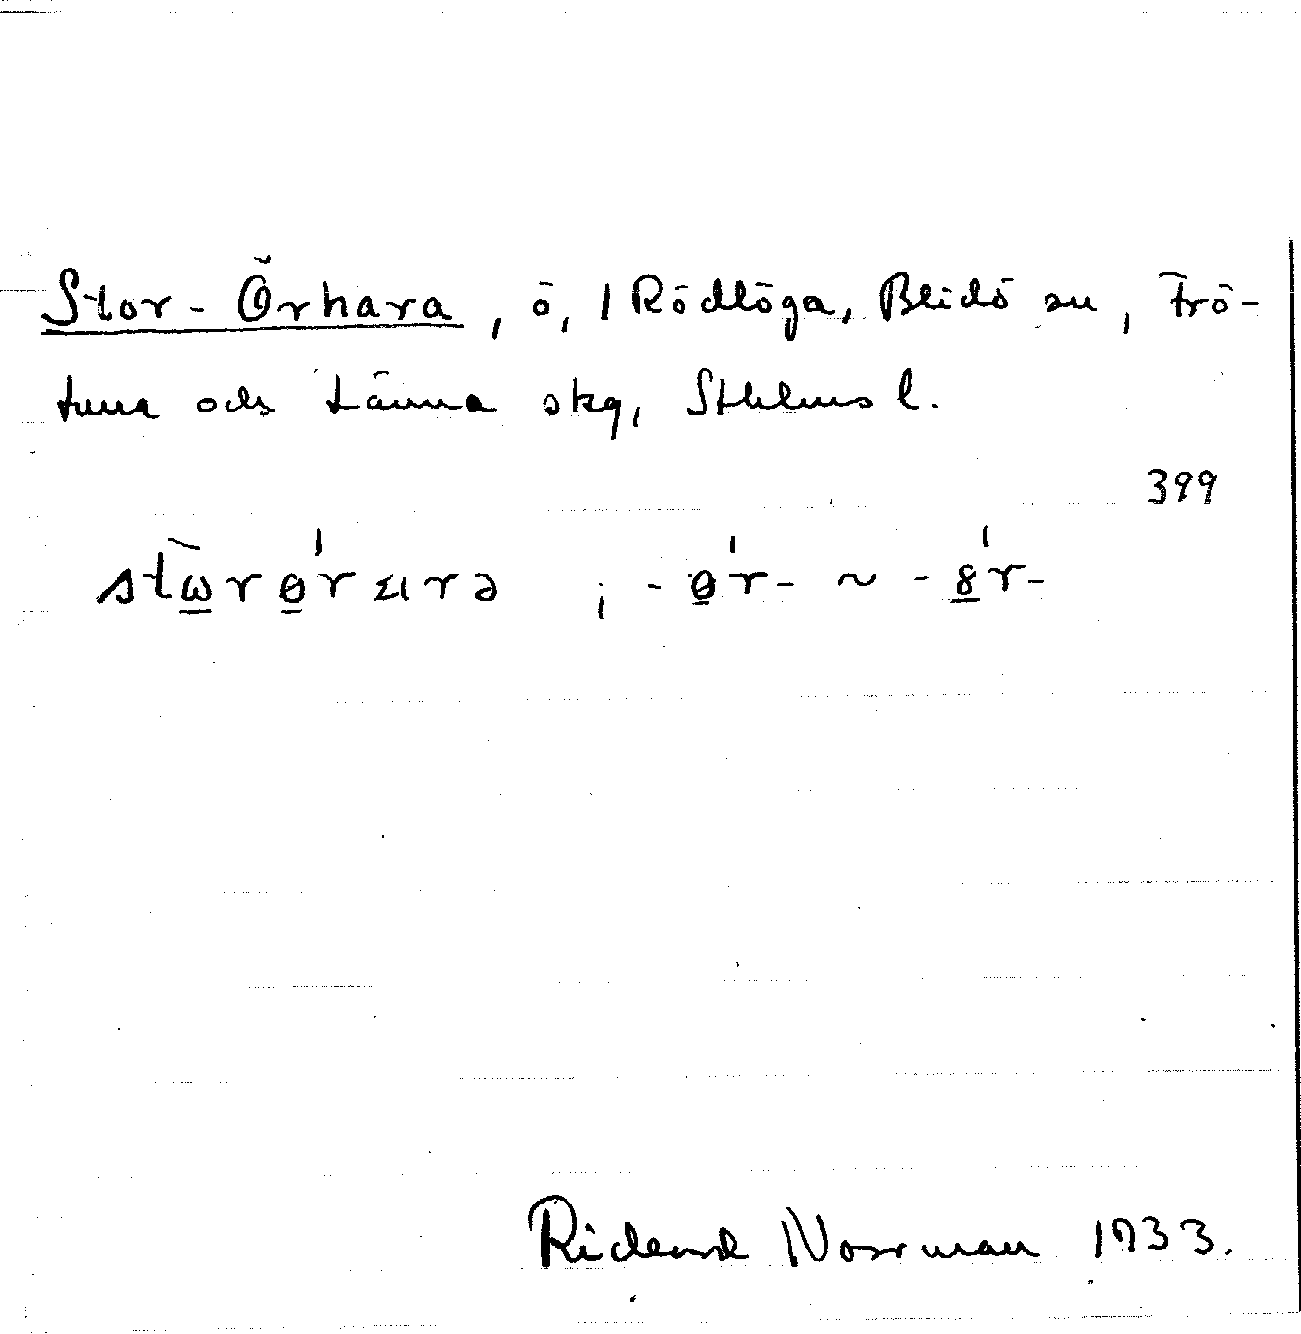 Stor-Örhara, ö, 1 Rödlöga, Blidö sn, Frö-
tuna och Länna skg, Sthlms l.
399
stὼ̲rɵ̲́rɑrə ; -ɵ̲́r- ~ -8̲́r-
Rickard Norrman 1933.